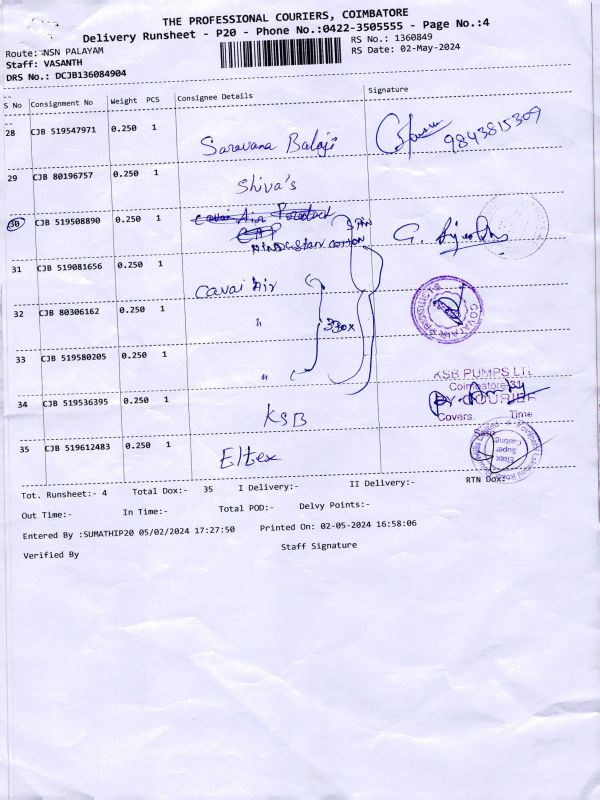 THE PROFESSIONAL COURIERS, COIMBATORE
Delivery Runsheet - P20 - Phone No.:0422-3505555 - Page No.:4
Route: NSN PALAYAM
RS No.: 1360849
Staff: VASANTH
RS Date: 02-May-2024
DRS No.: DCJB136084904
S No Consignment No Weight PCS Consignee Details Signature
28 CJB 519547971 0.250 1 Saravana Balaji 9843815309
29 CJB 80196757 0.250 1 Shiva's
30 CJB 519508890 0.250 1
HINDUSTAN COTTON
31 CJB 519081656 0.250 1 Covai Air
32 CJB 80306162 0.250 1 "
33 CJB 519580205 0.250 1 "
34 CJB 519536395 0.250 1 KSB
KSB PUMPS LTD
Coimbatore 31
BY COURIER
Covers. Time
35 CJB 519612483 0.250 1 Eltex
Eltex
Super
Casting
Tot. Runsheet:- 4 Total Dox:- 35 I Delivery:- II Delivery:- RTN Dox:
Out Time:- In Time:- Total POD:- Delvy Points:-
Entered By :SUMATHIP20 05/02/2024 17:27:50 Printed On: 02-05-2024 16:58:06
Verified By Staff Signature